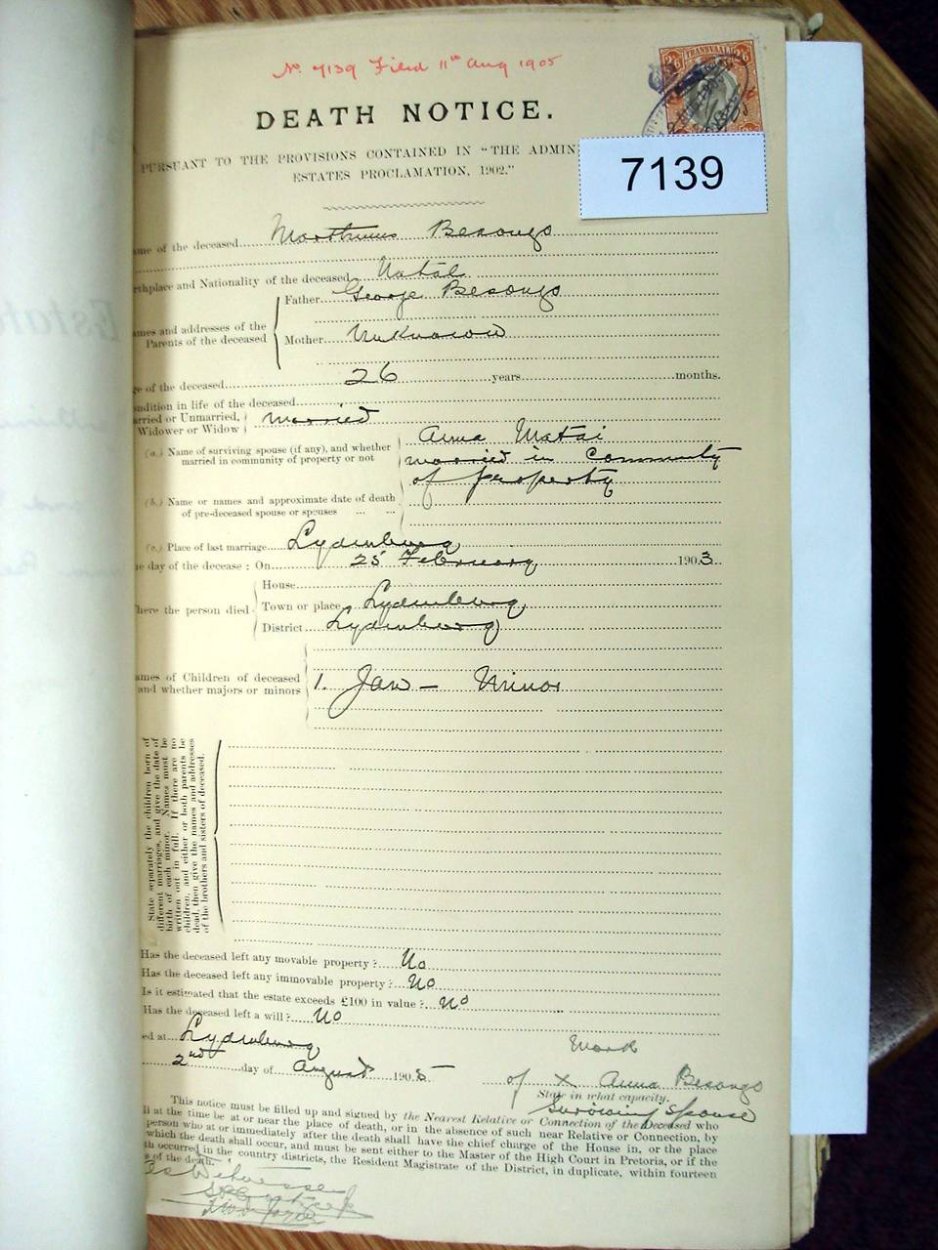 No. 7139 Filed 11th Aug 1905
TRANSVAAL
2/6 2/6
DEATH NOTICE.
PURSUANT TO THE PROVISIONS CONTAINED IN "THE ADMIN
ESTATES PROCLAMATION, 1902."
7139
ame of the deceased Marthinus Besongo
irthplace and Nationality of the deceased Natal
ames and addresses of the Parents of the deceased
Father George Besongo
Mother Unknown
ge of the deceased 26 years months.
ondition in life of the deceased
arried or Unmarried, Widower or Widow married
(a.) Name of surviving spouse (if any), and whether married in community of property or not
Anna Matai
married in Community
of property
(b.) Name or names and approximate date of death
of pre-deceased spouse or spouses ... ...
(c.) Place of last marriage Lydenburg
he day of the decease : On 25 February 1903
here the person died
House
Town or place Lydenburg
District Lydenburg
ames of Children of deceased
and whether majors or minors
1. Jan - Minor
State separately the children born of
different marriages, and give the date of
birth of each minor. Names must be
written out in full. If there are no
children, and either or both parents be
dead, then give the names and addresses
of the brothers and sisters of deceased.
Has the deceased left any movable property? No
Has the deceased left any immovable property? No
Is it estimated that the estate exceeds £100 in value? No
Has the deceased left a will? No
ed at Lydenburg
2nd day of August 1905
Mark
of X Anna Besongo
State in what capacity.
Surviving Spouse
This notice must be filled up and signed by the Nearest Relative or Connection of the Deceased who
ll at the time be at or near the place of death, or in the absence of such near Relative or Connection, by
person who at or immediately after the death shall have the chief charge of the House in, or the place
which the death shall occur, and must be sent either to the Master of the High Court in Pretoria, or if the
th occurred in the country districts, the Resident Magistrate of the District, in duplicate, within fourteen
s of the death.
As Witnesses